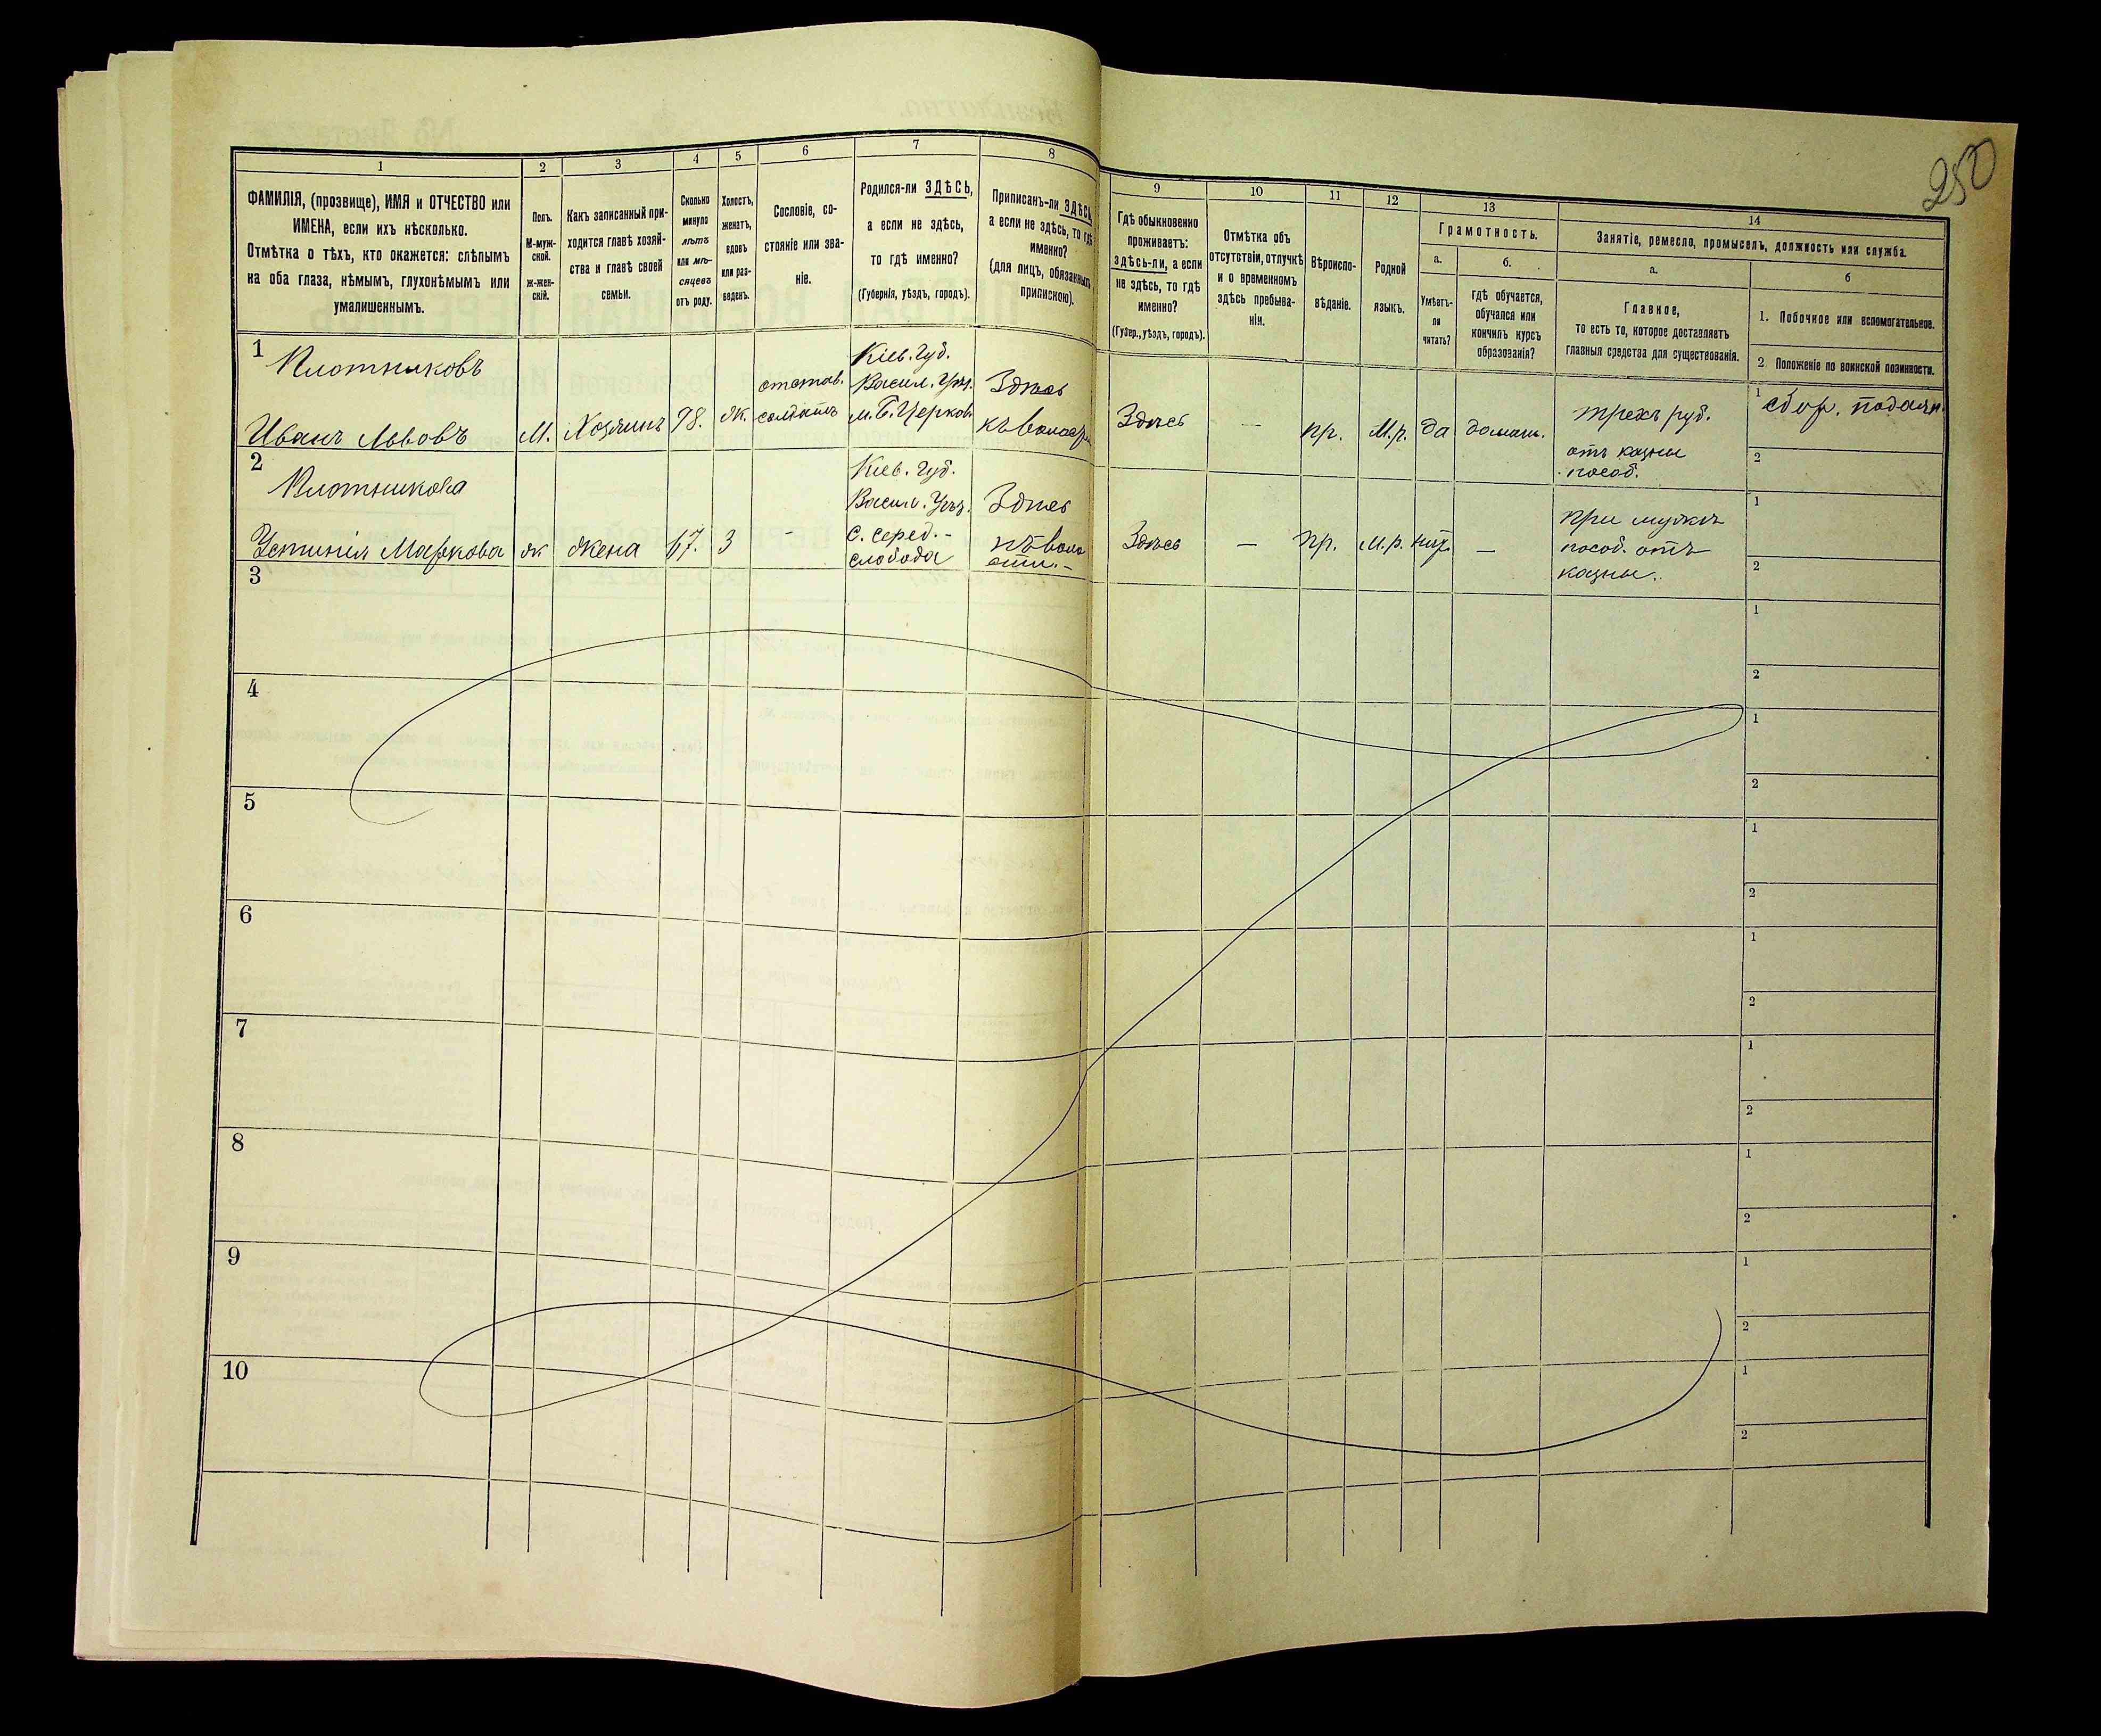 250
1
2
3
4
5
6
7
8
ФАМИЛІЯ, (прозвище), ИМЯ и ОТЧЕСТВО или
ИМЕНА, если ихъ нѣсколько.
Отмѣтка о тѣхъ, кто окажется: слѣпымъ
на оба глаза, нѣмымъ, глухонѣмымъ или
умалишеннымъ.
Полъ.
М-муж-
ской.
ж-жен-
скій.
Какъ записанный при-
ходится главѣ хозяй-
ства и главѣ своей
семьи.
Сколько
минуло
лѣтъ
или мѣ-
сяцевъ
отъ роду.
Холостъ,
женатъ,
вдовъ
или раз-
веденъ.
Сословіе, со-
стояніе или зва-
ніе.
Родился-ли ЗДѢСЬ,
а если не здѣсь,
то гдѣ именно?
(Губернія, уѣздъ, городъ).
Приписанъ-ли ЗДѢСЬ
а если не здѣсь, то гдѣ
именно?
(для лицъ, обязанныхъ
припискою).
9
10
11
12
13
14
Гдѣ обыкновенно
проживаетъ:
здѣсь-ли, а если
не здѣсь, то гдѣ
именно?
(Губер., уѣздъ, городъ).
Отмѣтка объ
отсутствіи, отлучкѣ
и о временномъ
здѣсь пребыва-
ніи.
Вѣроиспо-
вѣданіе.
Родной
языкъ.
Грамотность.
а.
Умѣетъ-
ли
читать?
б.
гдѣ обучается,
обучался или
кончилъ курсъ
образованія?
Занятіе, ремесло, промыселъ, должность или служба.
а.
Главное,
то есть то, которое доставляетъ
главныя средства для существованія.
б
1. Побочное или вспомогательное.
2 Положеніе по воинской повинности.
1
Плотниковъ
Иванъ Львовъ
М.
Хозяинъ
78.
ж.
отстав.
солдатъ
Кіев. Губ.
Васил. Уѣз.
м. Б. Церковь
Здѣсь
Здѣсь
—
пр.
М.р.
да
домашн.
трехъ руб.
отъ казны
пособ.
1
сбор. подаян.
2
2
Плотникова
Устинія Маркова
ж
жена
67.
З
-
Кіев. Губ.
Васил. Уѣз.
с. серед.-
слобода
Здѣсь
Здѣсь
—
пр.
М.р.
—
при мужѣ
пособ. отъ
казны.
1
2
3
1
2
4
1
2
5
1
2
6
1
2
7
1
2
8
1
2
9
1
2
10
1
2